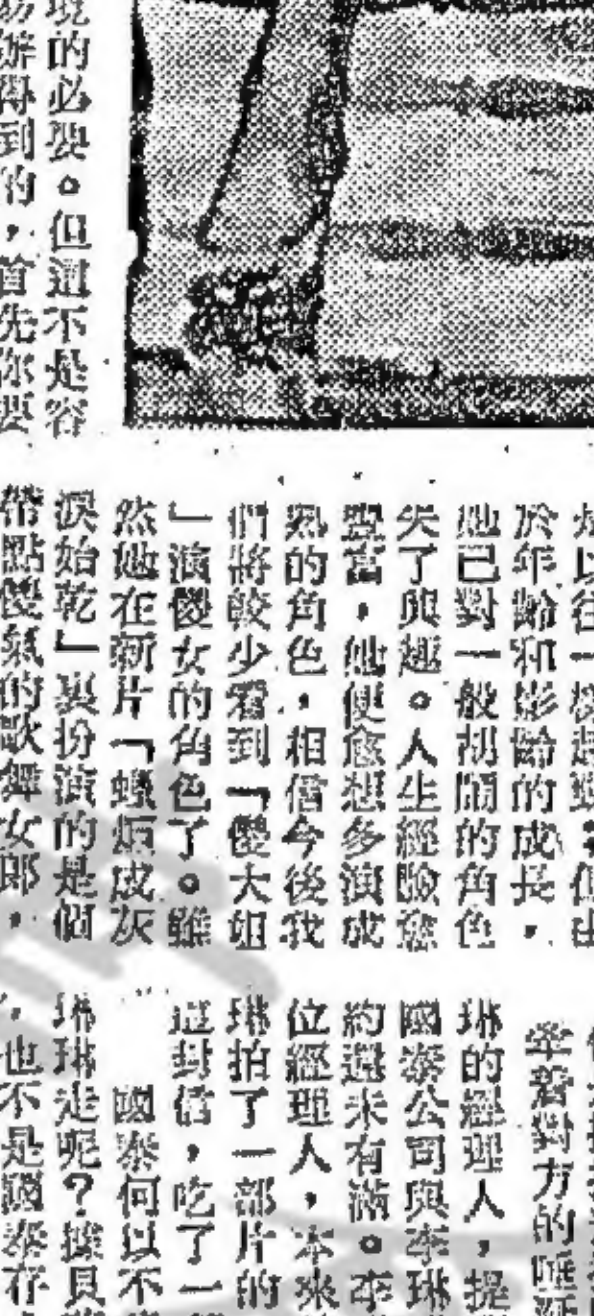 境的必要。但這不是容
易辦得到的，首先你要
於年齡和影齡的成長，
她已對一般胡鬧的角色
失了興趣。人生經驗愈
豐富，她便愈想多演成
熟的角色，相信今後我
們將較少看到「儍大姐
」演儍女的角色了。雖
然她在新片「蠟炬成灰
淚始乾」裏扮演的是個
帶點儍氣的歌舞女郎，
牽着對方的
琳的經理人，提
國泰公司與李琳
約還未有滿。李
位經理人，本來
琳拍了一部片的
這封信，吃了一
國泰何以不
琳琳走呢？據貝
也不是國泰存